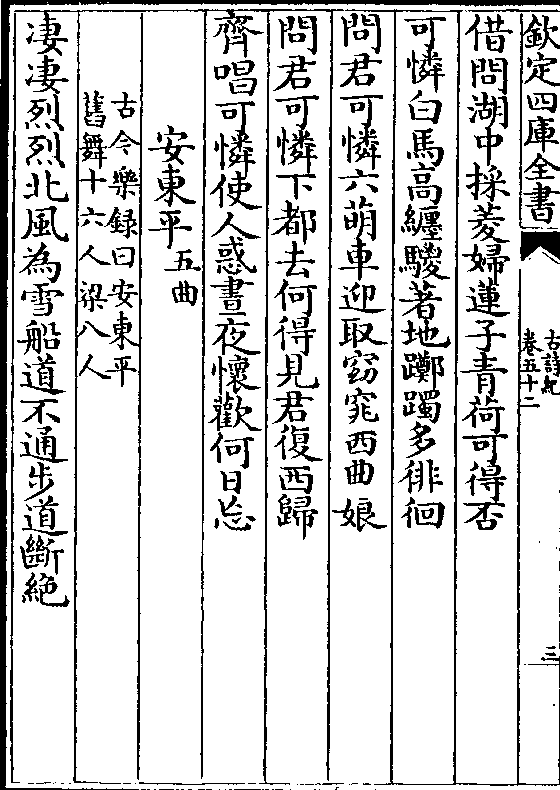 欽定四庫全書
古詩紀
卷五十二
三
借問湖中採菱婦蓮子青荷可得否
可憐白馬高纏騣著地躑躅多徘徊
問君可憐六萌車迎取窈窕西曲娘
問君可憐下都去何得見君復西歸
齊唱可憐使人惑晝夜懷歡何日忘
安東平五曲
古今樂録曰安東平
舊舞十六人梁八人
凄凄烈烈北風為雪船道不通步道斷絶